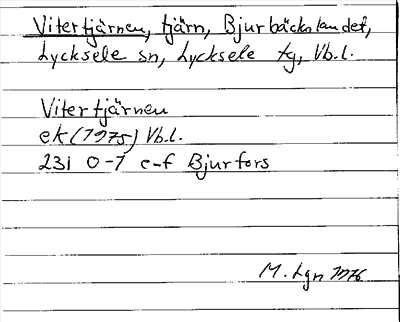 Vitertjärnen, tjärn, Bjurbäckslandet,
Lycksele sn, Lycksele tg, Vb.l.
Vitertjärnen
ek (1975) Vb.l.
231 0-1 e-f Bjurfors
M. Lgn 1976